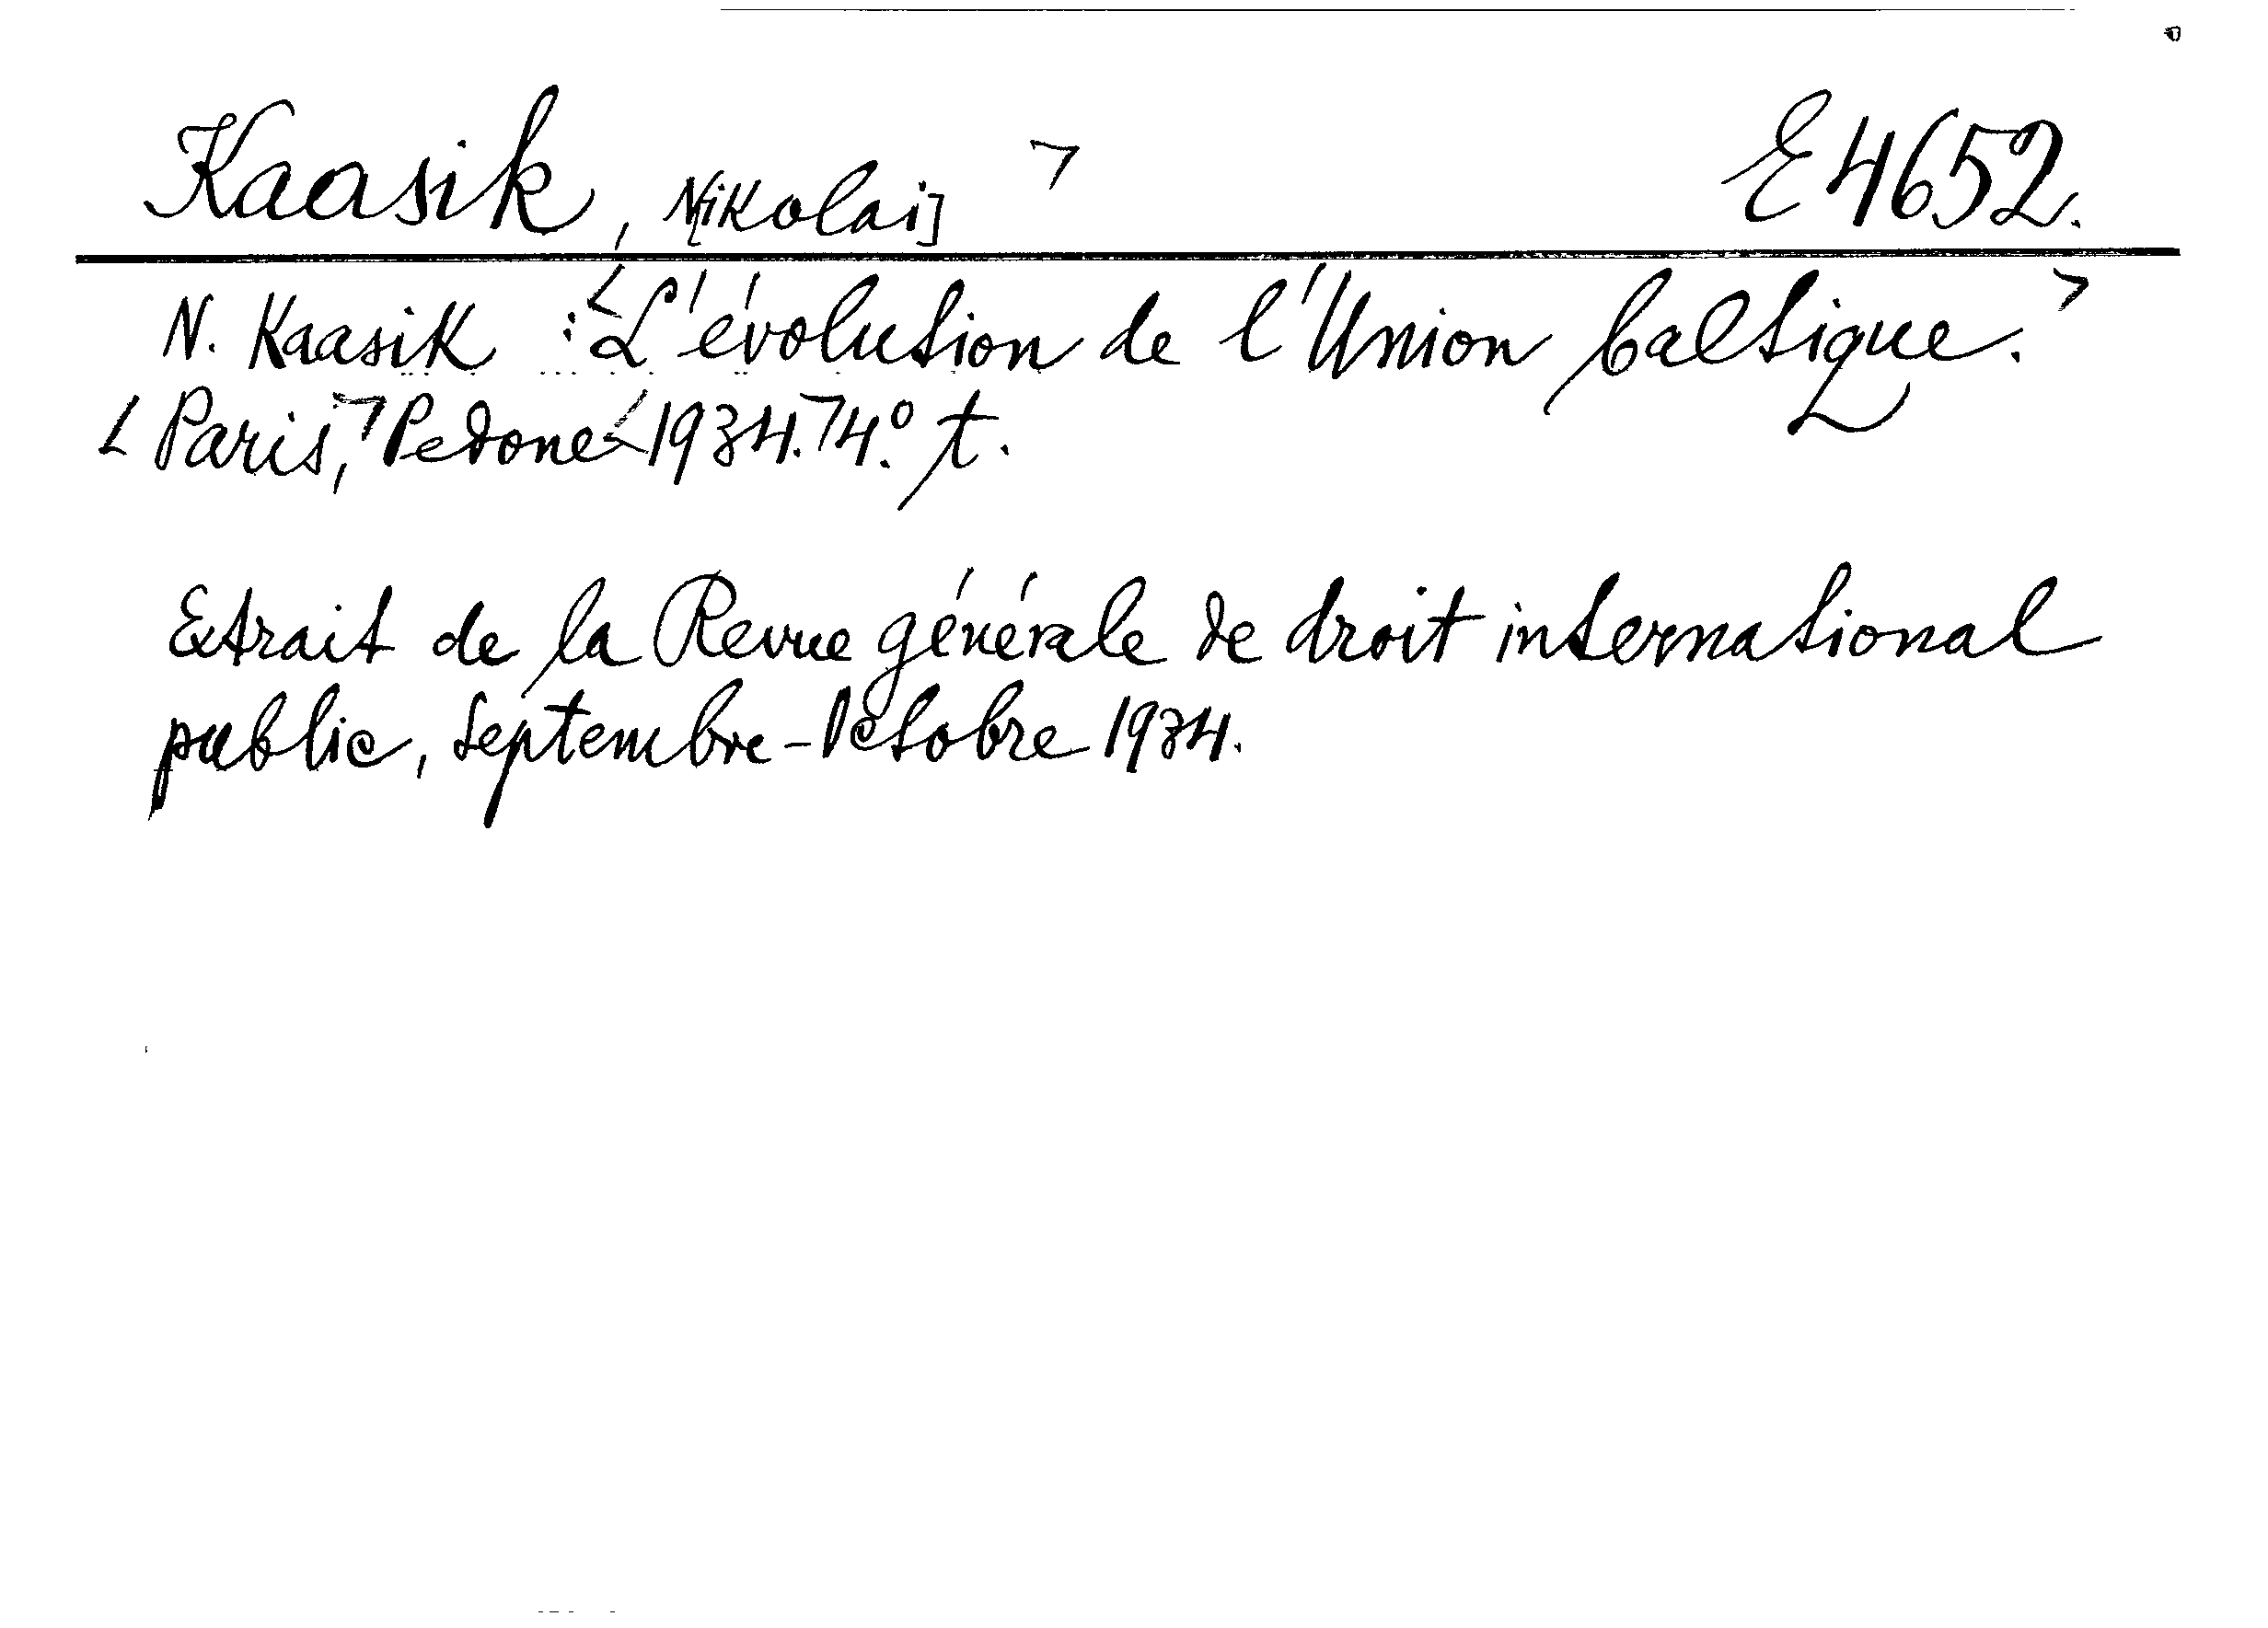 Kaasik, N[ikolai] E 4652.
N. Kaasik : L'évolution de l'Union baltique.
Paris, Pedone 1934. 4.° t.
Extrait de la Revue générale de droit international
public, Septembre-Octobre 1934.